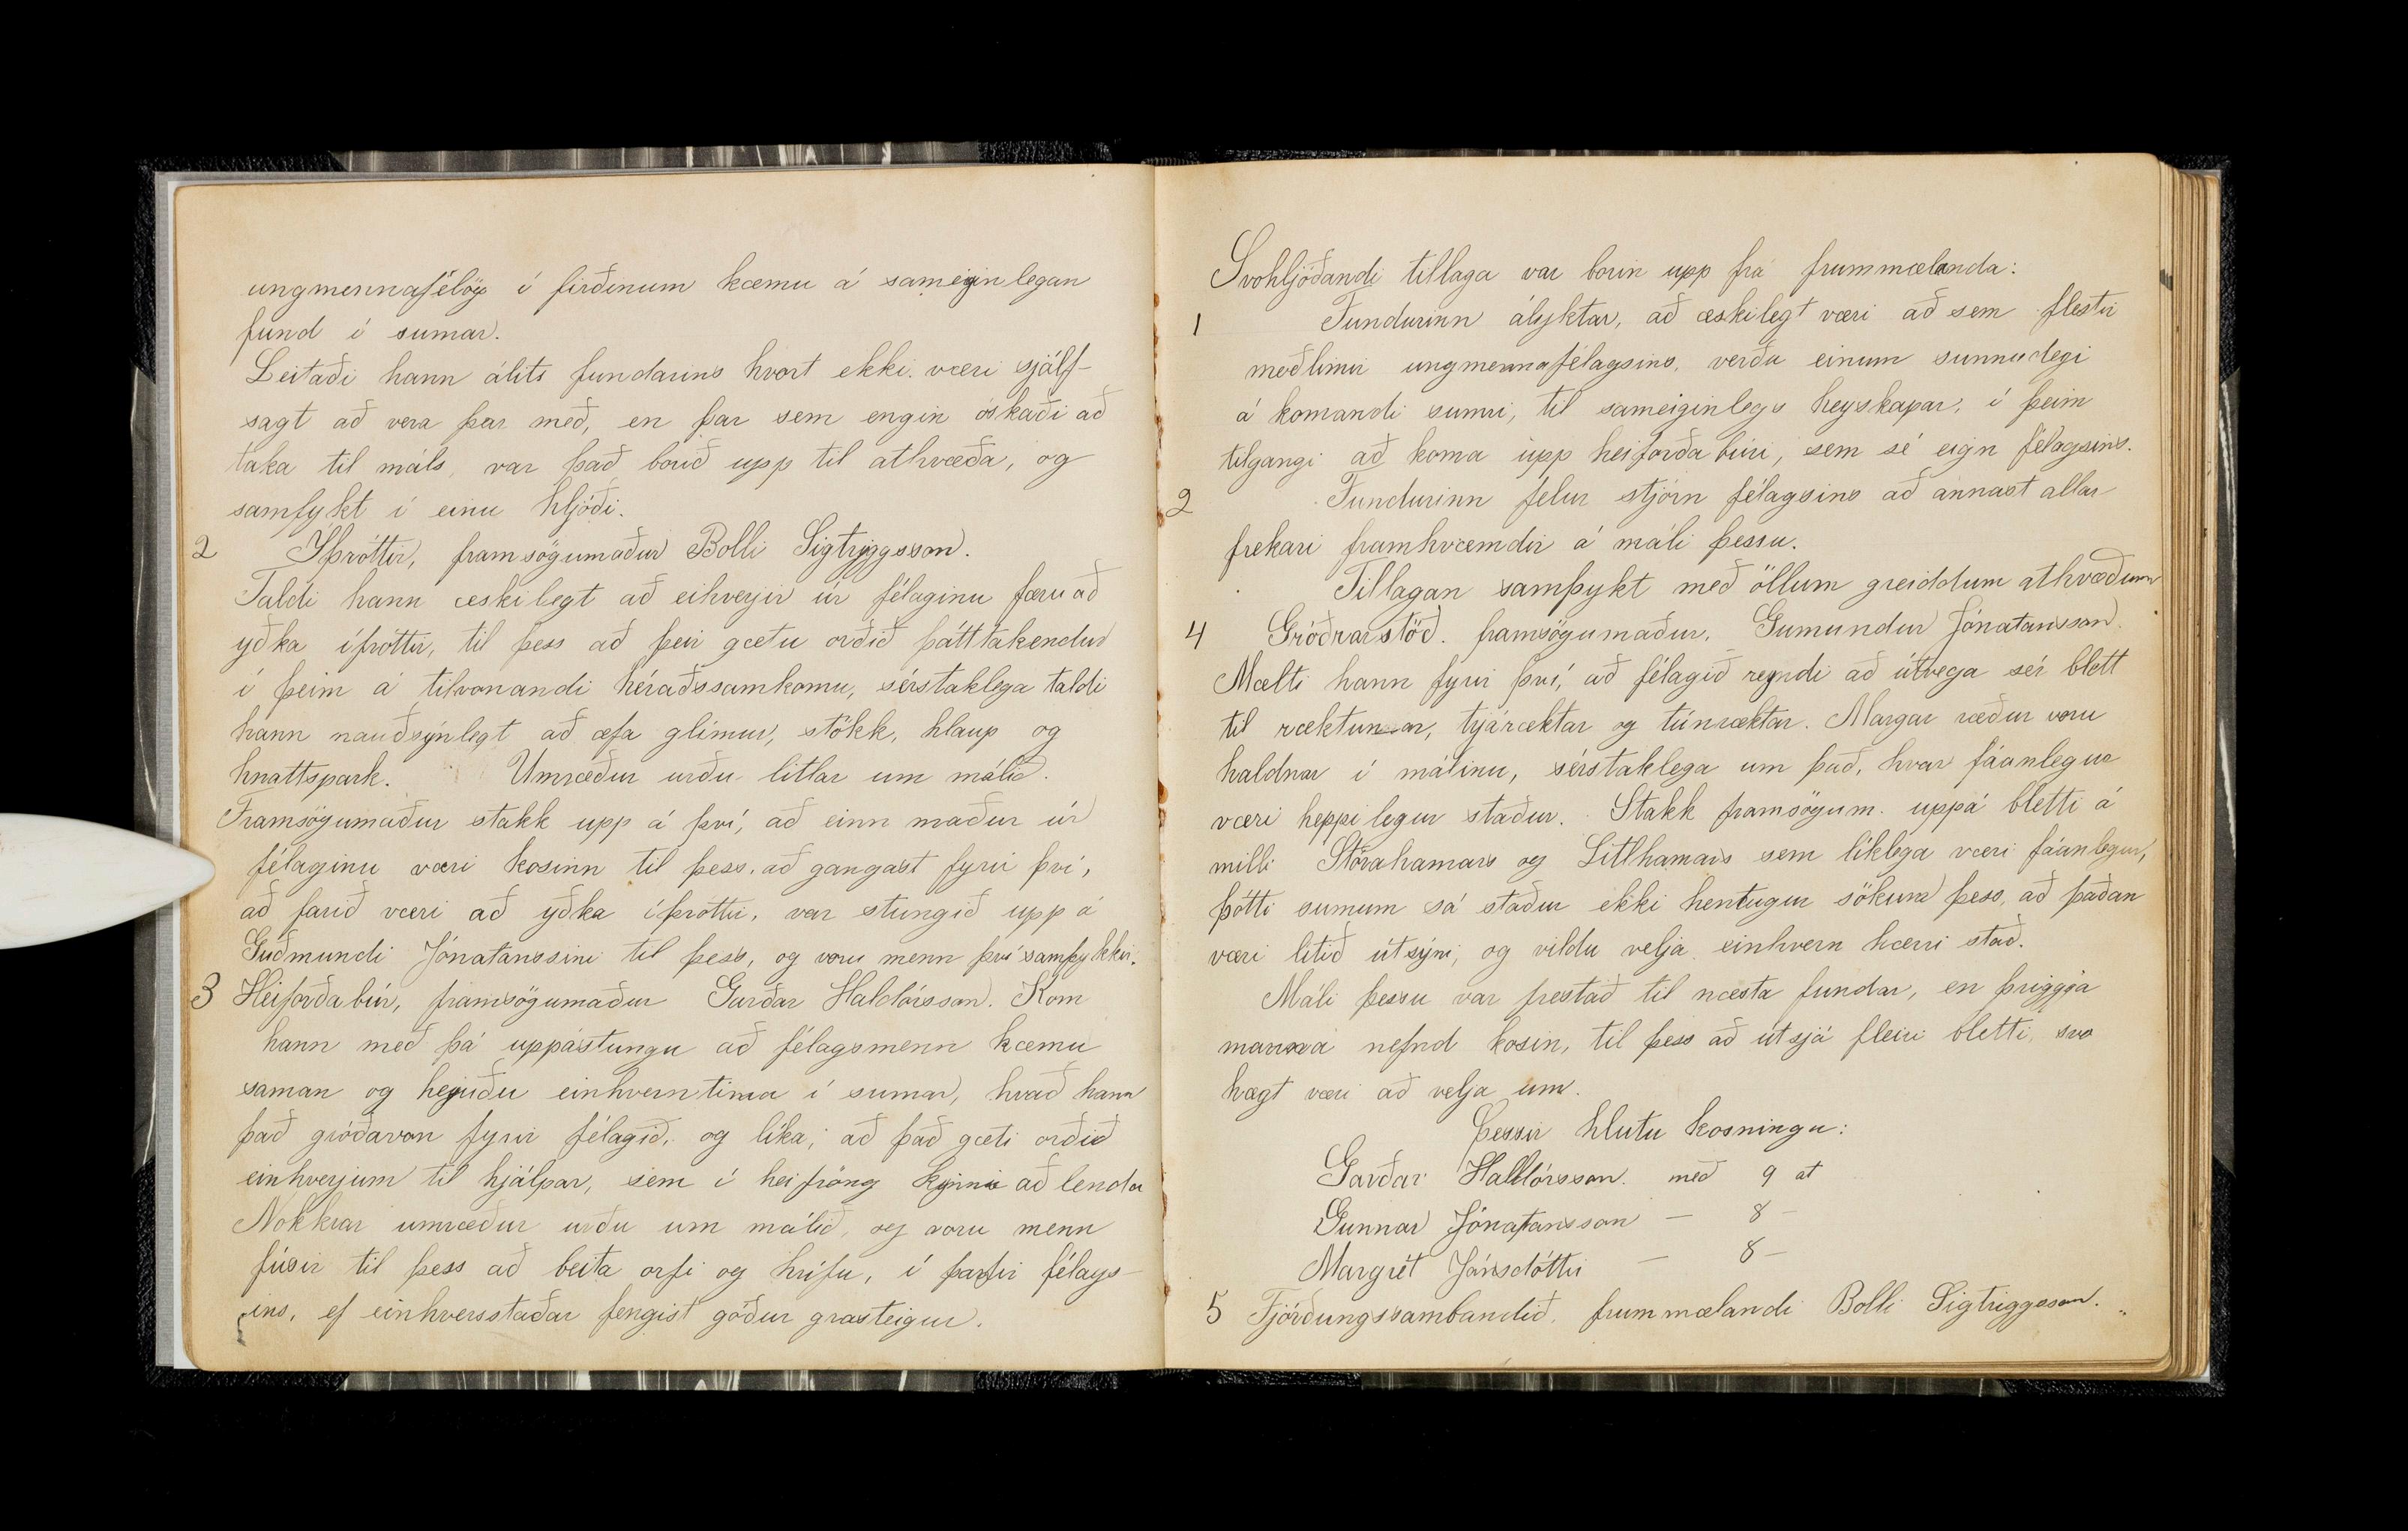 ungmennafélög í firðinum kæmu á sameiginlegan
fund í sumar.
Leitaði hann álits fundarins hvort ekki væri sjálf-
sagt að vera þar með, en þar sem engin óskaði að
taka til máls, var það borið upp til athvæða, og
samþykt í einu hljóði.
2 Íþróttir, framsögumaður Bolli Sigtryggsson.
Taldi hann æskilegt að eihverjir úr félaginu færu að
yðka íþróttir, til þess að þeir gætu orðið þátttakendur
í þeim á tilvonandi héraðssamkomu, sérstaklega taldi
hann nauðsýnlegt að æfa glímur, stökk, hlaup og
knattspark. Umræður urðu litlar um málið.
Framsögumaður stakk upp á því, að einn maður úr
félaginu væri kosinn til þess, að gangast fyrir því,
að farið væri að yðka íþróttir, var stungið upp á
Guðmundi Jónatanssini til þess, og voru menn því samþykkir.
3 Heiforðabúr, framsögumaður Garðar Halldórsson. Kom
hann með þá uppástungu að félagsmenn kæmu
saman og heyuðu einhverntima í sumar, hvað hann
það gróðavon fyrir félagið, og líka, að það gæti orðið
einhverjum til hjálpar, sem í heiþröng kynni að lenda
Nokkrar umræður urðu um málið, og voru menn
fúsir til þess að beita orfi og hrífu, í þarfir félags-
ins, ef einhversstaðar fengist góður grasteigur.
Svohljóðandi tillaga var borin upp frá frummælanda:
1 Fundurinn ályktar, að æskilegt væri að sem flestir
meðlimir ungmennafélagsins, verðu einum sunnudegi
á komandi sumri, til sameiginlegs heyskapar, í þeim
tilgangi að koma upp heiforðabúri, sem sé eign félagsins.
2 Fundurinn felur stjórn félagsins að annast allar
frekari framhvæmdir á máli þessu.
Tillagan samþykt með öllum greiddum athvæðum
4 Gróðrarstöð. framsögumaður. Gumundur Jónatansson.
Mælti hann fyrir því, að félagið reyndi að útvega sér blett
til ræktunar, tjáræktar og túnræktar. Margar ræður voru
haldnar í málinu, sérstaklega um það, hvar fáanlegur
væri heppilegur staður. Stakk framsögum. uppá bletti á
milli Stórahamars og Litlhamars sem líklega væri fáanlegur,
þótti sumum sá staður ekki hentugur sökum þess, að þaðan
væri lítið útsýni, og vildu velja einhvern hærri stað.
Máli þessu var frestað til næsta fundar, en þriggja
manna nefnd kosin, til þess að útsjá fleiri bletti, svo
hægt væri að velja um.
Þessir hlutu kosningu:
Garðar Halldórsson. með 9 at
Gunnar Jónatansson — 8 —
Margrét Jónsdóttir — 8 —
5 Fjórðungssambandið. frummælandi Bolli Sigtriggsson.